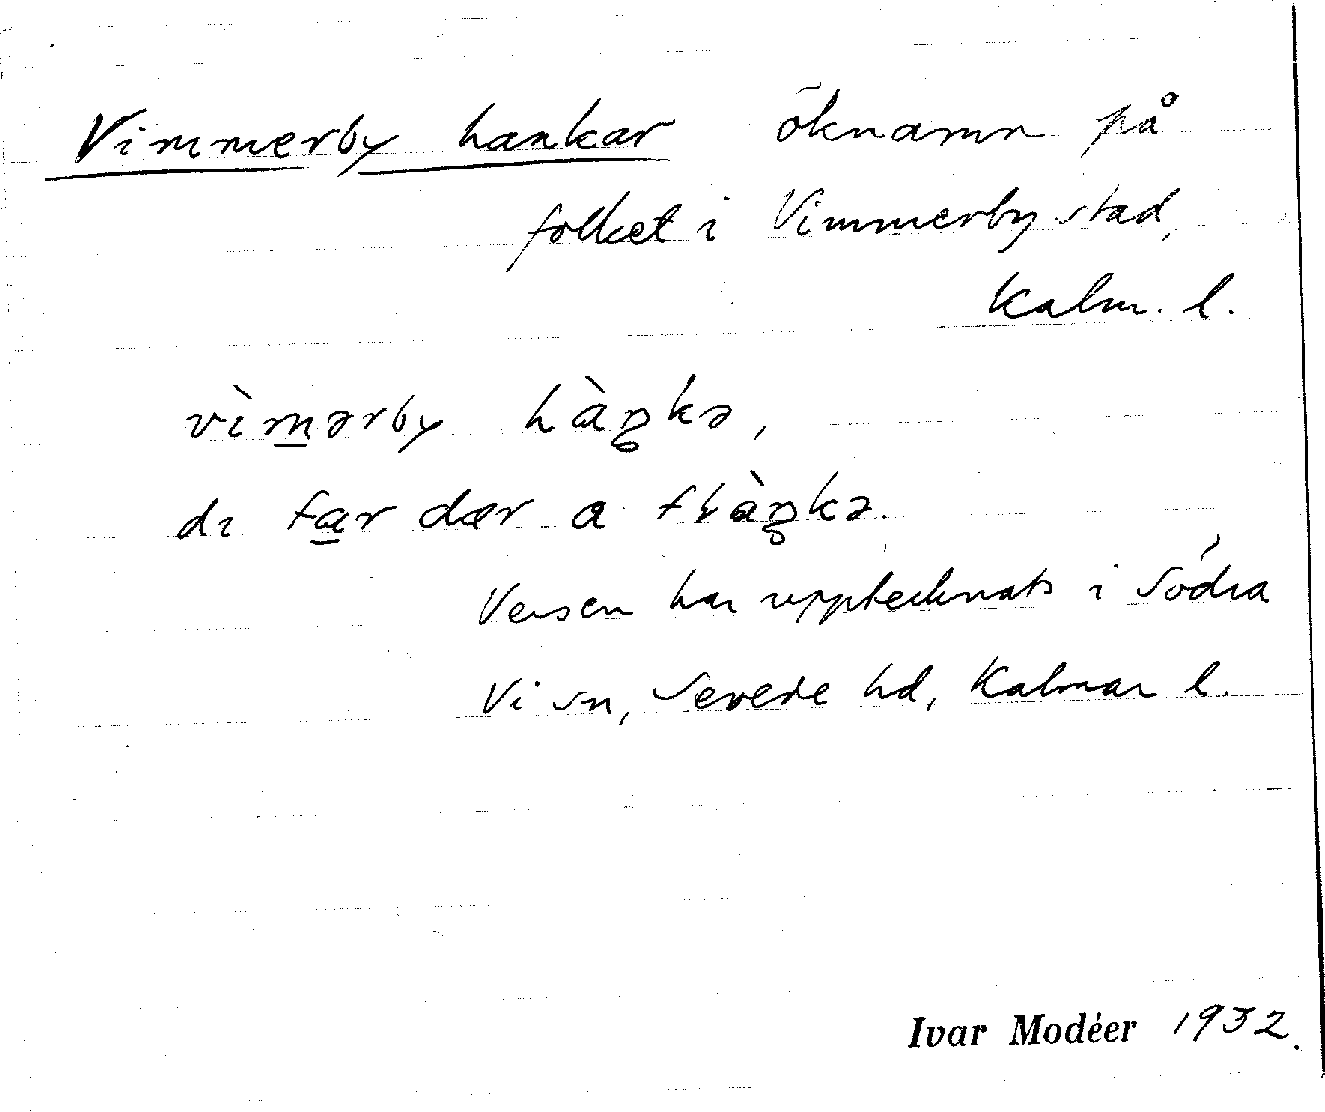 Vimmerby hankar öknamn på
folket i Vimmerby stad,
Kalm. l.
vìmərby hàŋkə,
di fær dær a flàŋkə.
Versen har upptecknats i Södra
Vi sn, Sevede hd, Kalmar l.
Ivar Modéer 1932.